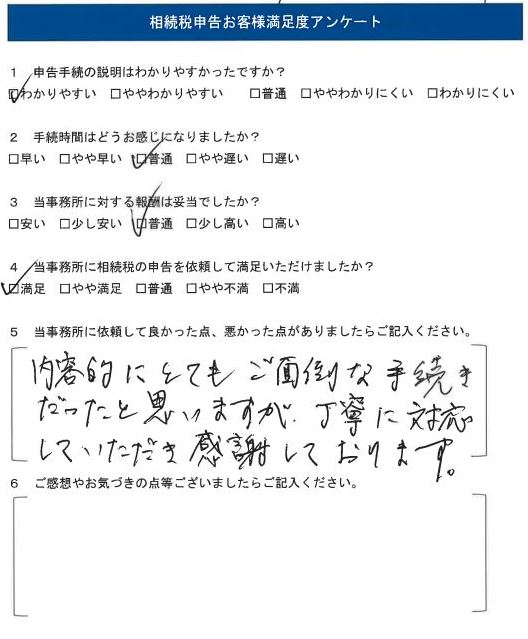 相続税申告お客様満足度アンケート
1 申告手続の説明はわかりやすかったですか?
□わかりやすい □ややわかりやすい □普通 □ややわかりにくい □わかりにくい
2 手続時間はどうお感じになりましたか?
□早い □やや早い □普通 □やや遅い □遅い
3 当事務所に対する報酬は妥当でしたか?
□安い □少し安い □普通 □少し高い □高い
4 当事務所に相続税の申告を依頼して満足いただけましたか?
□満足 □やや満足 □普通 □やや不満 □不満
5 当事務所に依頼して良かった点、悪かった点がありましたらご記入ください。
内容的にとてもご面倒な手続き
だったと思いますが、丁寧に対応
していただき感謝しております。
6 ご感想やお気づきの点等ございましたらご記入ください。